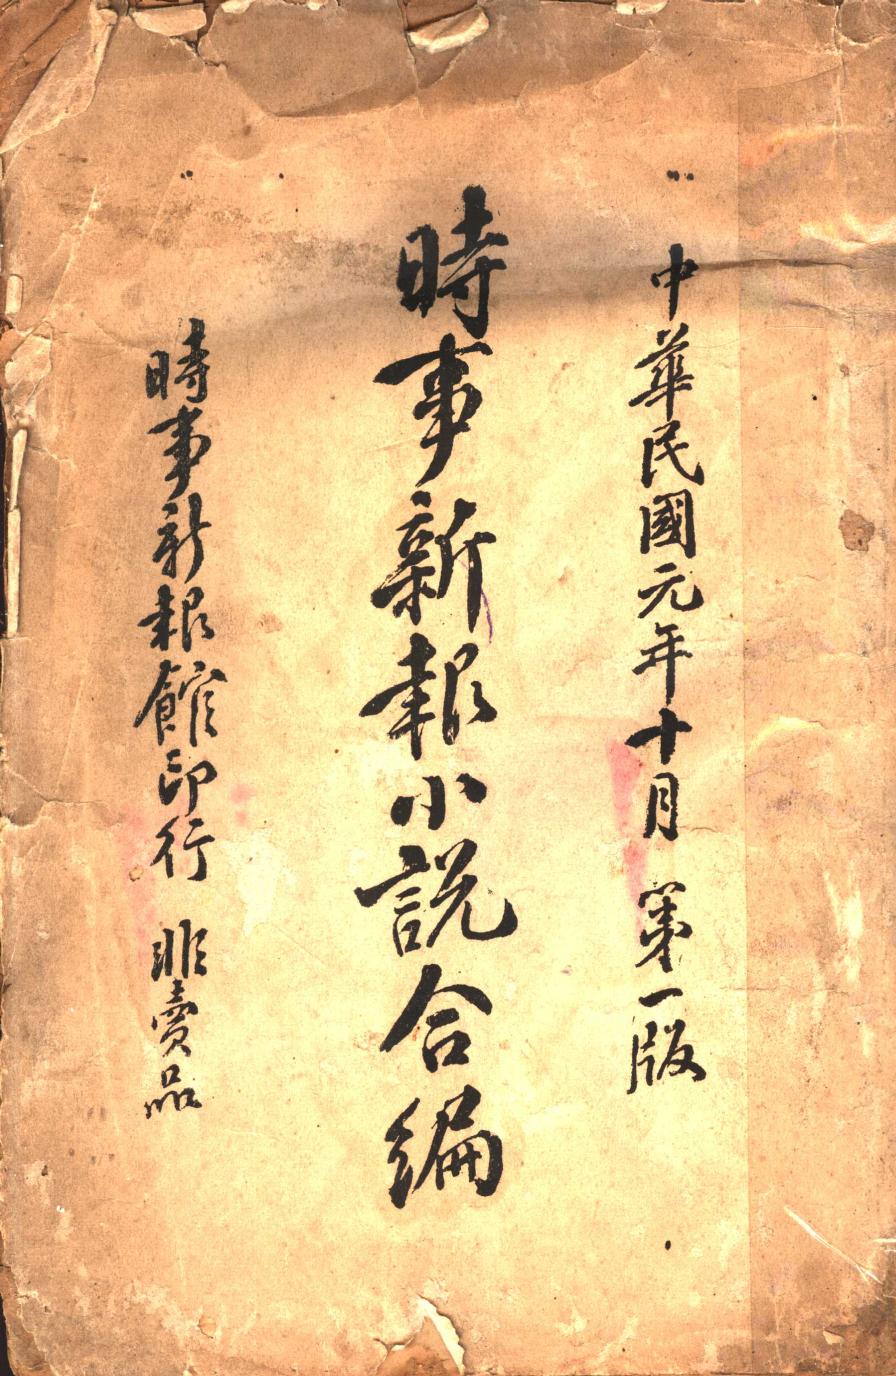 中華民國元年十月 第一版
時事新報小說合編
時事新報館印行 非賣品